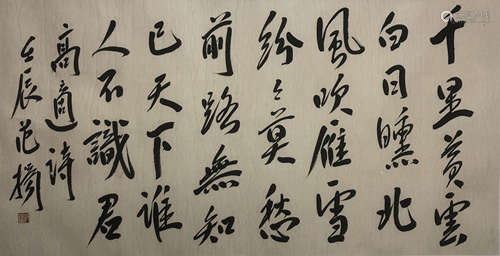 千里黄雲
白日曛北
風吹雁雪
紛々莫愁
前路無知
已天下誰
人不識君
高適詩
壬辰范揚